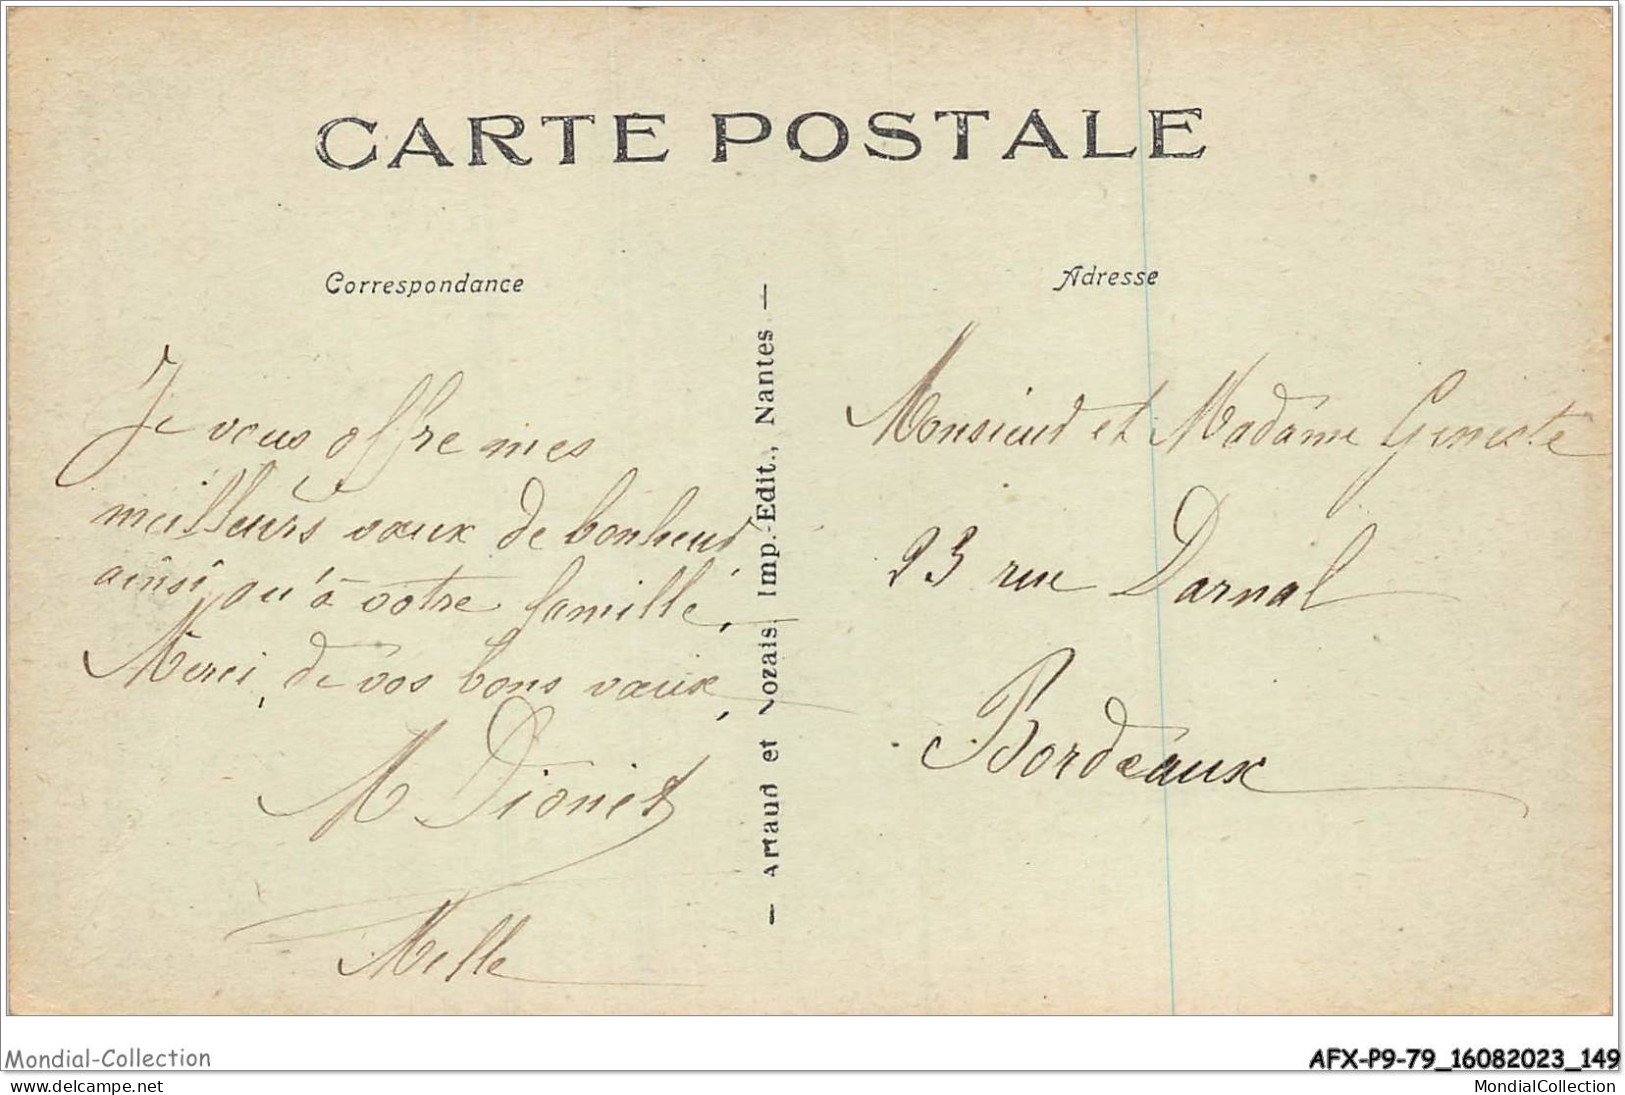 CARTE POSTALE
Correspondance
Adresse
Je vous offre mes
meilleurs vœux de bonheur
ainsi qu'à votre famille,
Merci, de vos bons vœux,
M Dionet
Melle
— Artaud et Nozais, Imp.-Edit., Nantes —
Monsieur et Madame Geneste
23 rue Darnal
Bordeaux
Mondial-Collection
AFX-P9-79_16082023_149
www.delcampe.net
MondialCollection